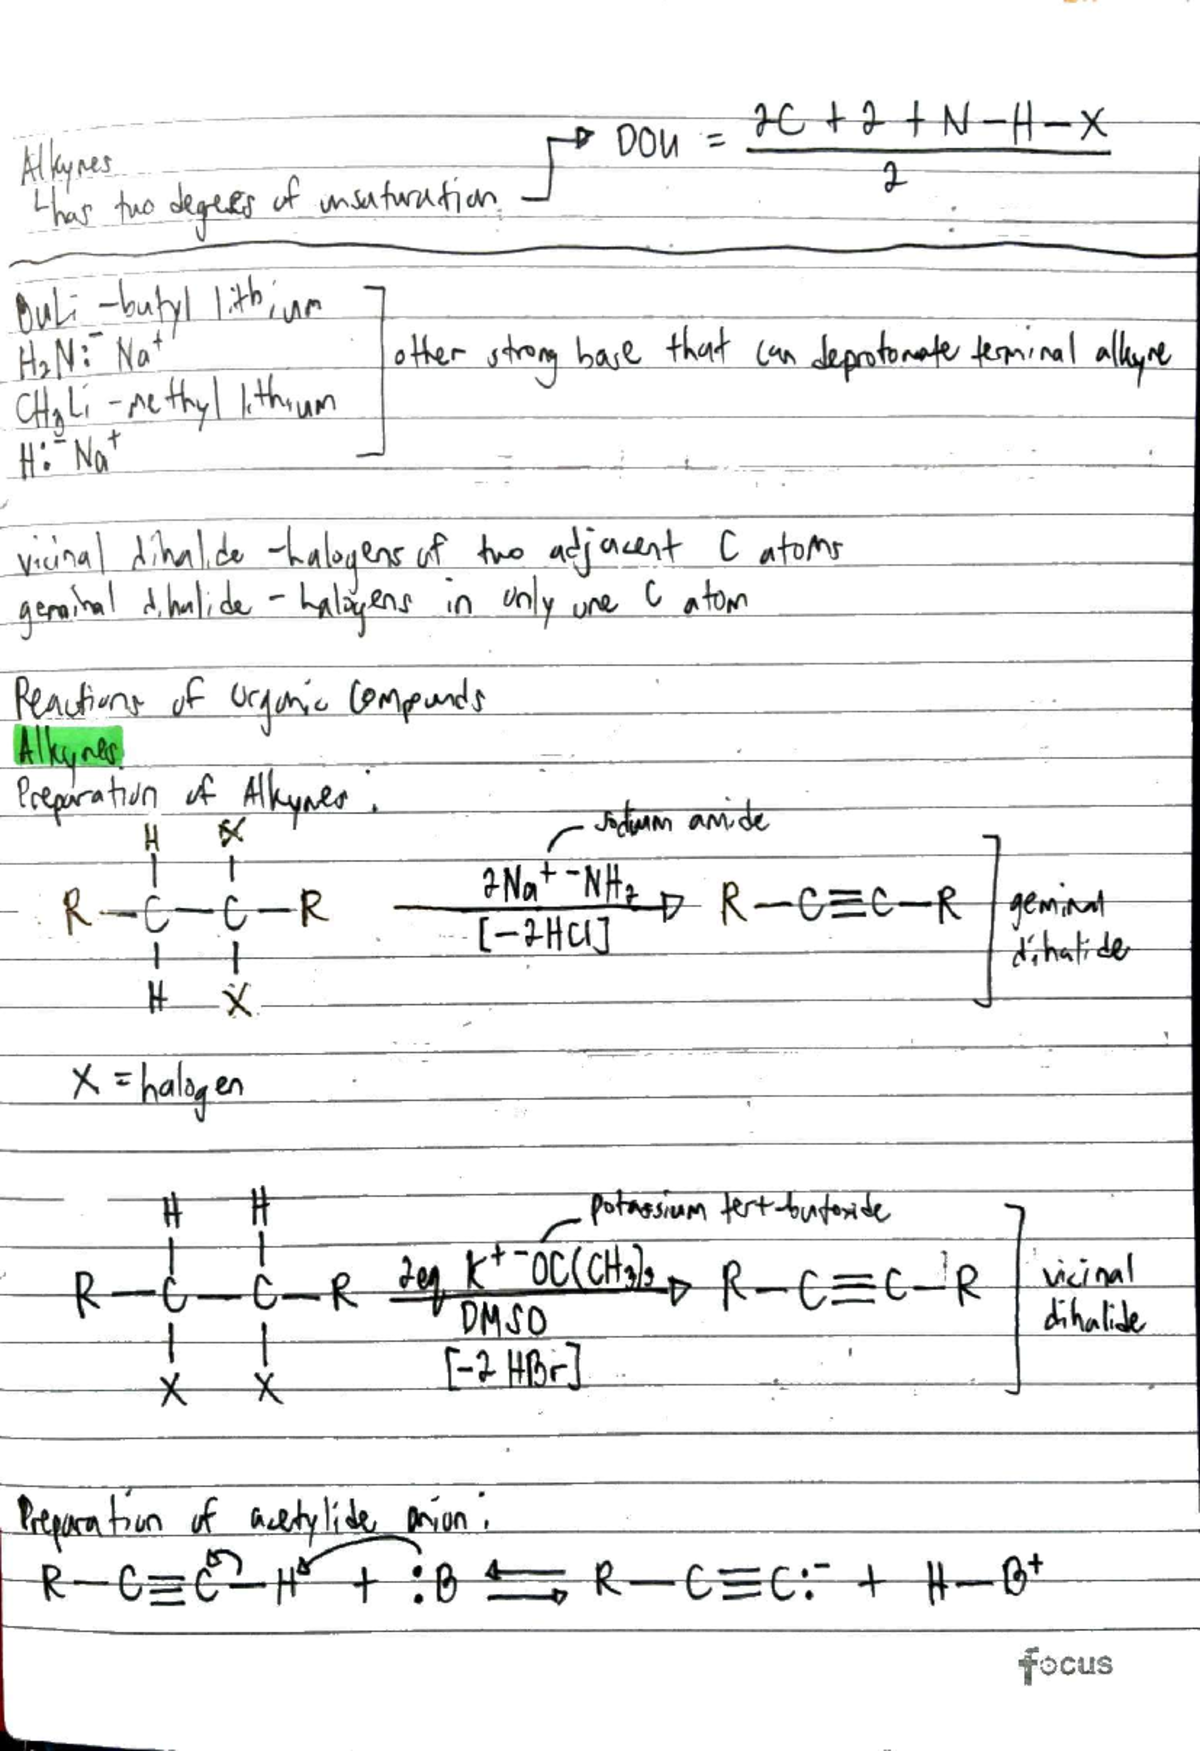 DOU = 2C + 2 + N - H - X
2
Alkynes
↳has two degrees of unsaturation
BuLi - butyl lithium
H₂N:⁻ Na⁺
CH₃Li - methyl lithium
H:⁻ Na⁺
other strong base that can deprotonate terminal alkyne
vicinal dihalide - halogens of two adjacent C atoms
geminal dihalide - halogens in only one C atom
Reactions of Organic Compounds
Alkynes
Preparation of Alkynes:
sodium amide
H X
2Na⁺ ⁻NH₂
R-C-C-R R-C≡C-R
[-2HCl]
H X
geminal
dihalide
X = halogen
potassium tert-butoxide
H H
2eq K⁺ ⁻OC(CH₃)₃
R-C-C-R R-C≡C-R
DMSO
[-2 HBr]
X X
vicinal
dihalide
Preparation of acetylide anion:
R-C≡C-H + :B ⇌ R-C≡C:⁻ + H-B⁺
focus